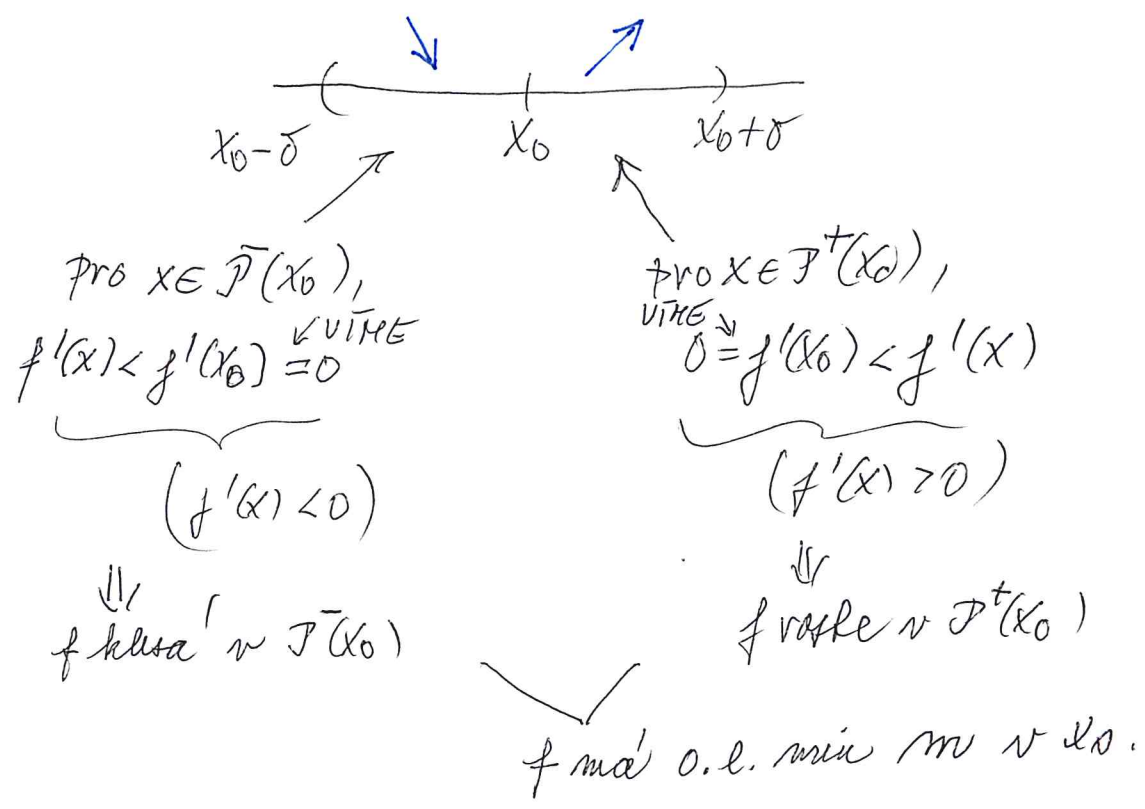 x₀-δ x₀ x₀+δ
pro x∈P⁻(x₀),
f'(x)<f'(x₀)=0
↙VÍME
(f'(x)<0)
⇓
f klesá v P⁻(x₀)
pro x∈P⁺(x₀),
VÍME↘
0=f'(x₀)<f'(x)
(f'(x)>0)
⇓
f roste v P⁺(x₀)
f má o.l. min v x₀.